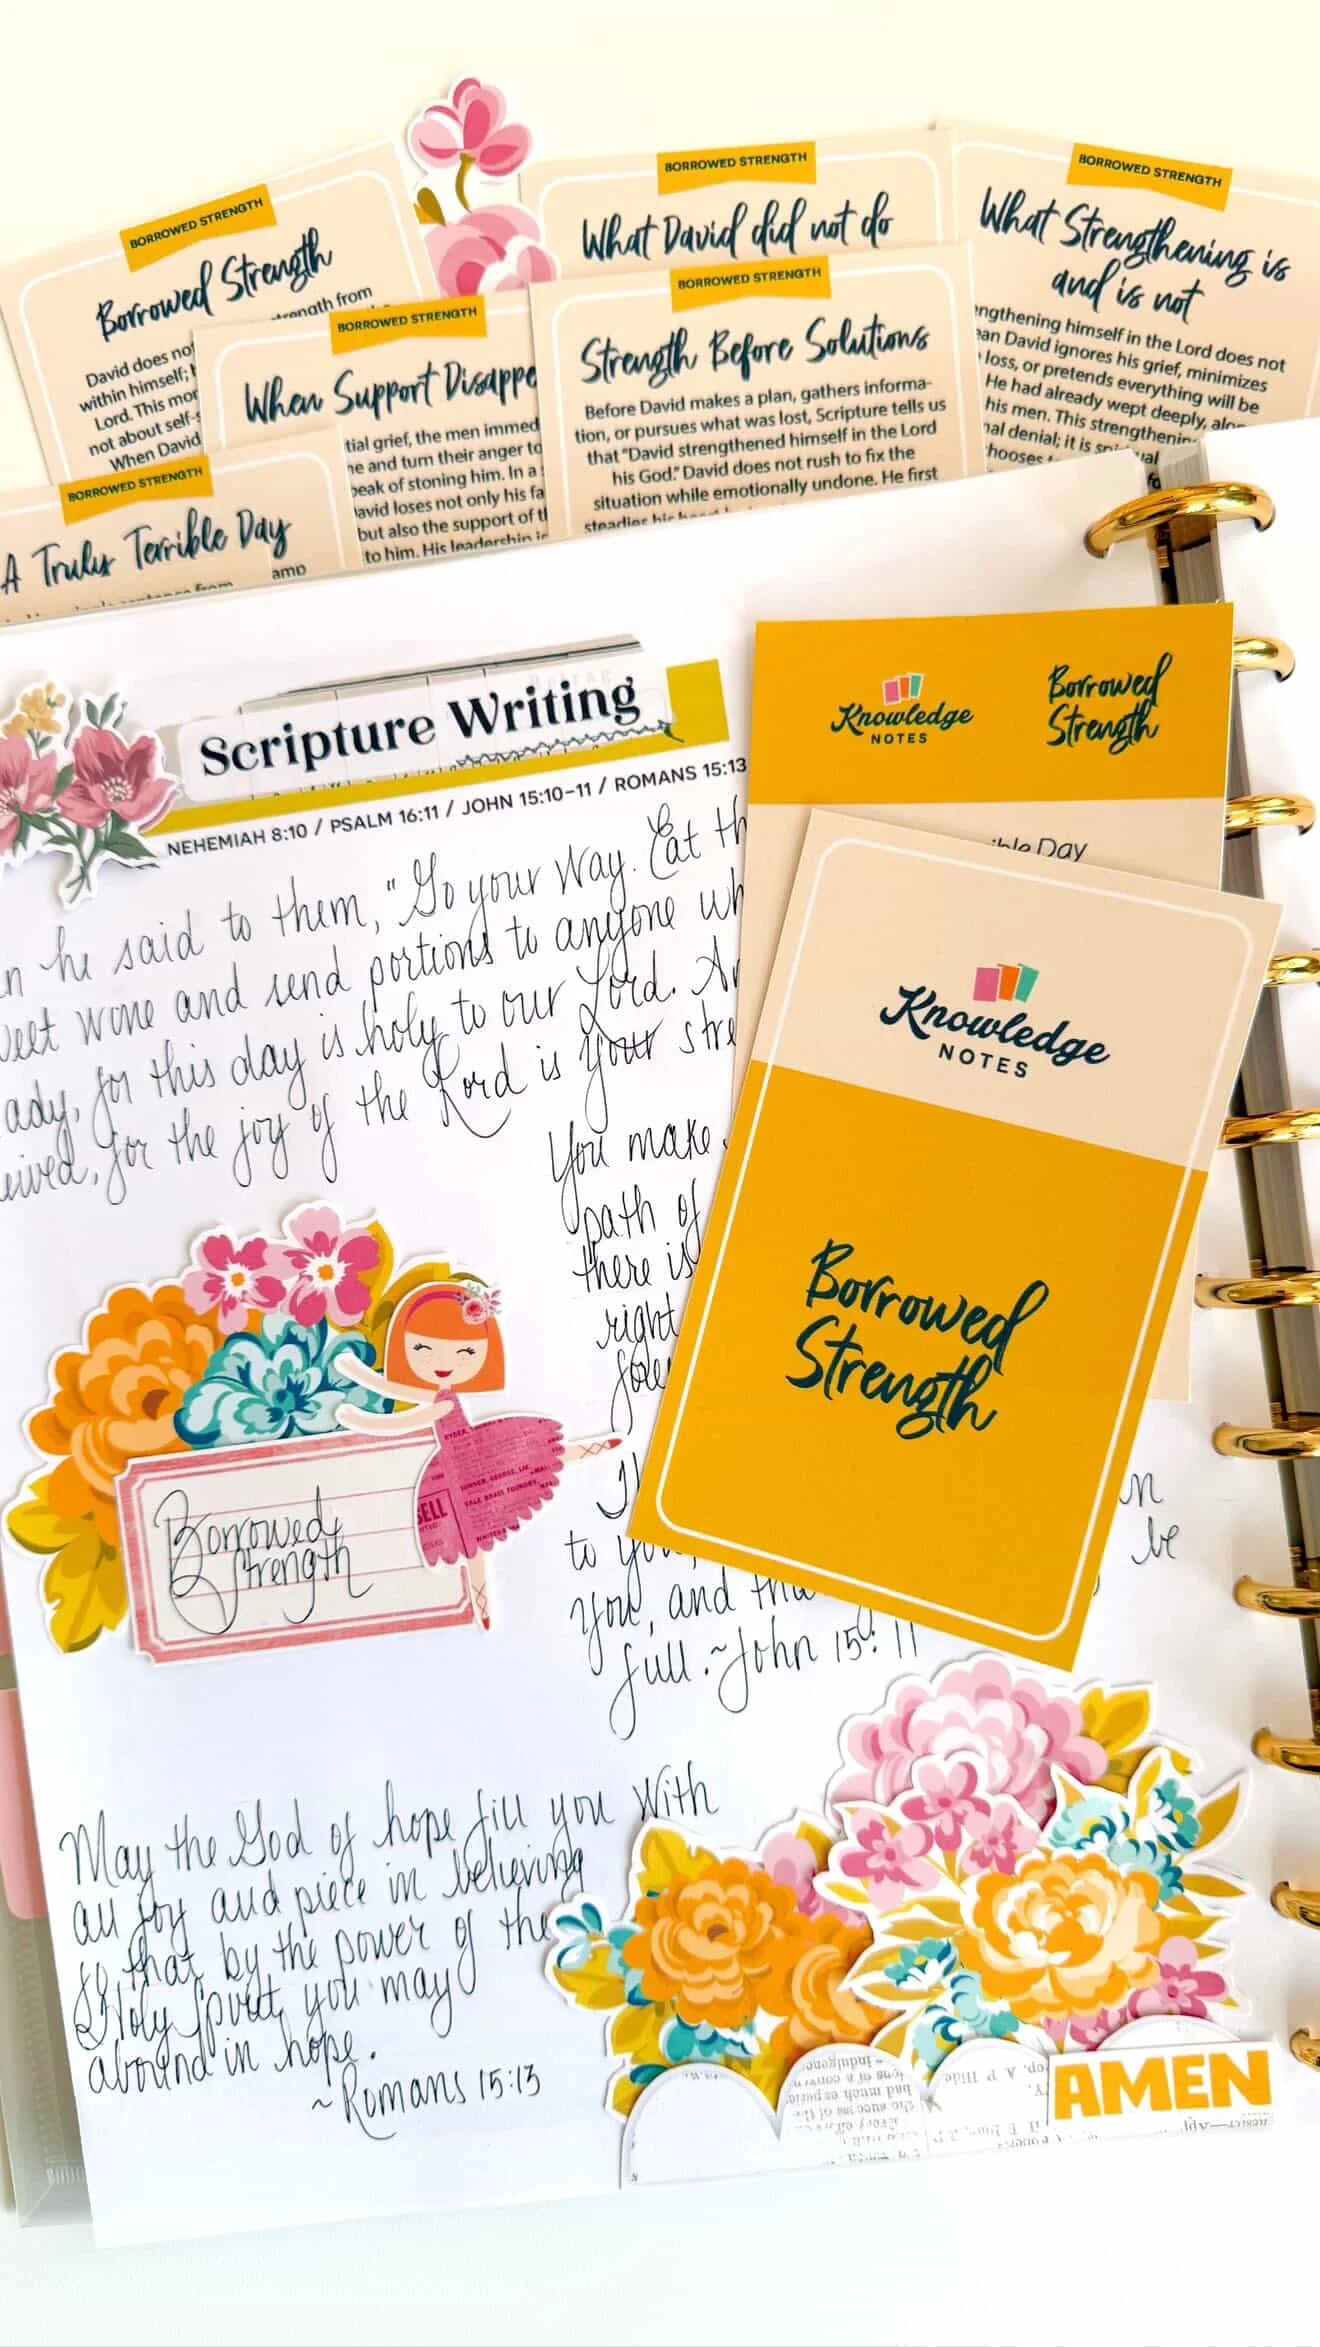 BORROWED STRENGTH
Borrowed Strength
strength from
David does not
within himself;
Lord. This mor
not about self-s
When David
BORROWED STRENGTH
What David did not do
BORROWED STRENGTH
What Strengthening is
and is not
engthening himself in the Lord does not
ean David ignores his grief, minimizes
loss, or pretends everything will be
He had already wept deeply, alon
his men. This strengthening
nal denial; it is spiritual
chooses
BORROWED STRENGTH
When Support Disappe
tial grief, the men immed
ne and turn their anger to
peak of stoning him. In a
avid loses not only his fa
but also the support of t
to him. His leadership i
BORROWED STRENGTH
Strength Before Solutions
Before David makes a plan, gathers informa-
tion, or pursues what was lost, Scripture tells us
that "David strengthened himself in the Lord
his God." David does not rush to fix the
situation while emotionally undone. He first
steadies his
BORROWED STRENGTH
A Truly Terrible Day
amp
sentence from
Scripture Writing
NEHEMIAH 8:10 / PSALM 16:11 / JOHN 15:10-11 / ROMANS 15:13
n he said to them, "Go your way. Eat th
weet wine and send portions to anyone wh
ady, for this day is holy to our Lord. An
eived, for the joy of the Lord is your stre
You make
path of
there is
right
fore
Th
to you,
n
be
you, and tha
full. ~John 15:11
Knowledge
NOTES
Borrowed
Strength
ible Day
Knowledge
NOTES
Borrowed
Strength
Borrowed
Strength
SELL
May the God of hope fill you with
all joy and piece in believing
so that by the power of the
Holy Spirit you may
abound in hope.
~Romans 15:13
AMEN